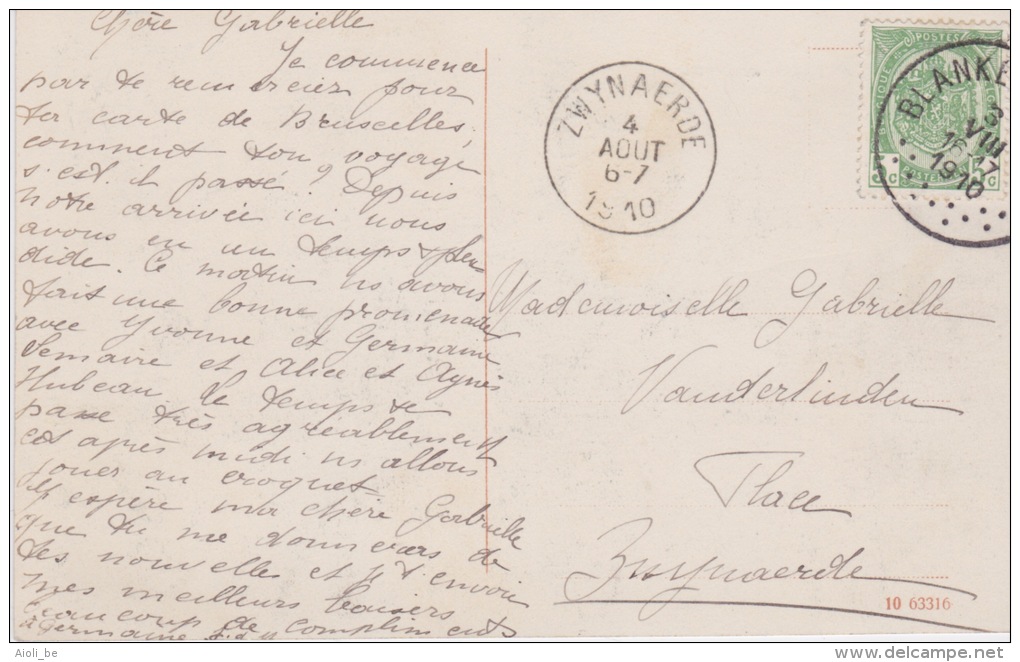 Chère Gabrielle
Je commence
par te remercier pour
ta carte de Bruxelles.
comment ton voyage
s'est il passé? Depuis
notre arrivée ici nous
avons eu un temps splen-
dide. Ce matin ns avons
fait une bonne promenade
avec Yvonne et Germaine
Lemaire et Alice et Agnès
Hubeau. Le temps se
passe très agréablement
cet après midi ns allons
jouer au croquet
J'espère ma chère Gabrielle
que tu me donneras de
tes nouvelles et je t'envoie
mes meilleurs baisers
Beaucoup de compliments
à Germaine
ZWYNAERDE
4
AOUT
6-7
1910
POSTES
BLANKE
3
VIII
16-17
1910
Mademoiselle Gabrielle
Vanderlinden
Place
Zwynaerde
10 63316
Aioli_be
delcampe.net